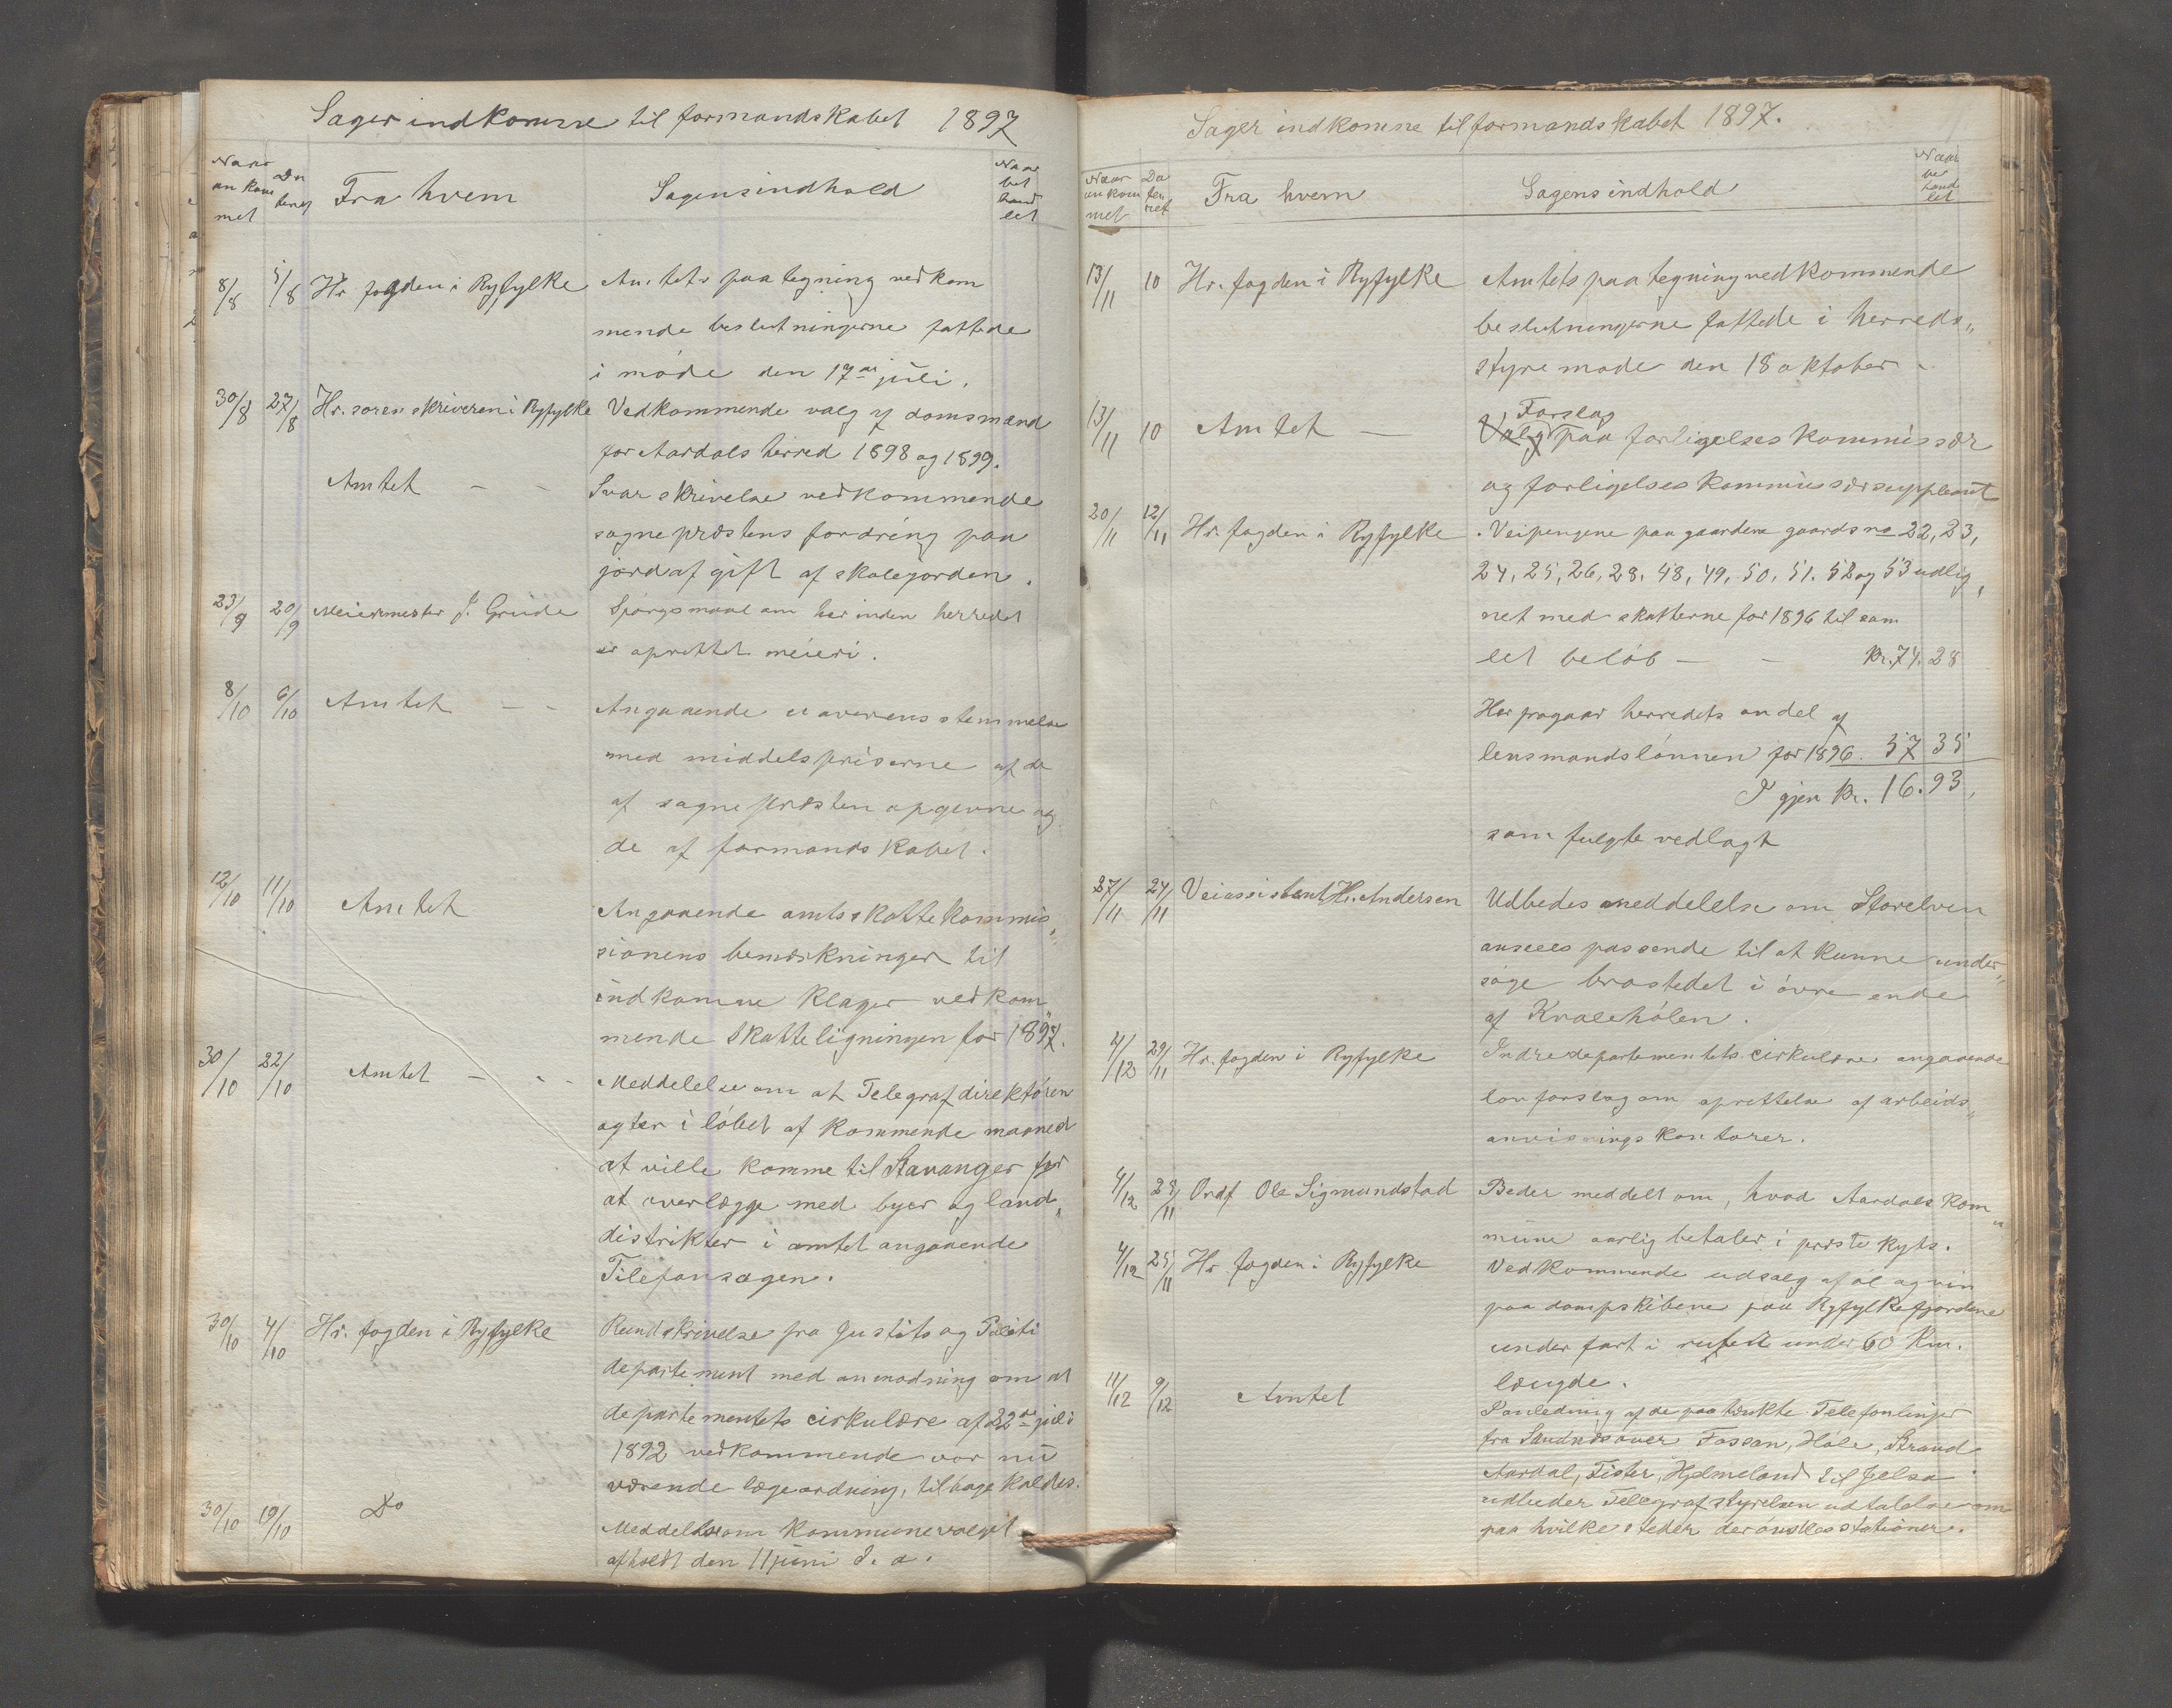 Sager indkomne til formandskabet 1897
Naar ankommet
Da teret
Fra hvem
Sagensindhold
Naar behandlet
8/8 5/8 Hr fogden i Ryfylke Amtets paategning vedkom
mende beslutningerne fattede
i møde den 17de juli.
30/8 27/8 Hr. sorenskriveren i Ryfylke Vedkommende valg af domsmænd
for Aardals herred 1898 og 1899.
Amtet - - Svarskrivelse vedkommende
sogneprestens fordring paa
jordafgift af skolejorden.
23/9 20/9 Meiermester J. Grude Spørgsmaal om her inden herredet
er oprettet meieri.
8/10 6/10 Amtet - - Angaaende uoverensstemmelse
med middelspriserne af de
af sognepresten opgivne og
de af formandskabet.
12/10 11/10 Amtet Angaaende amtsskattekommis„
sionens bemerkninger til
indkomne klager vedkom„
mende skatteligningen for 1897.
30/10 22/10 Amtet - - - Meddelelse om at Telegrafdirektøren
agter i løbet af kommende maaned
at ville komme til Stavanger for
at overlægge med byer og land„
distrikter i amtet angaaende
Telefonsagen.
30/10 4/10 Hr. fogden i Ryfylke Rundskrivelse fra Justits og Politi
departement med anmodning om at
departementets cirkulære af 22de juli
1892 vedkommende vor nu
værende lægeordning, tilbagekaldes.
30/10 19/10 Do Meddelelse om kommunevalget
afholdt den 11 juni d. a.
Sager indkomne til formandskabet 1897.
Naar ankommet
Da ter ret
Fra hvem
Sagensindhold
Naar be handlet
13/11 10 Hr. fogden i Ryfylke Amtets paategning vedkommende
beslutningerne fattede i herreds„
styremøde den 18 oktober.
Forslag
13/11 10 Amtet — Valg paa forligelseskommissær
og forligelseskommissærsuppleant
20/11 12/11 Hr. fogden i Ryfylke . Veipengene paa gaardene gaardsno 22, 23,
24, 25, 26, 28, 48, 49, 50, 51. 52 og 53 udlig„
net med skatterne for 1896 til sam
let beløb — - Kr. 74. 28
Her fragaar herredets andel af
lensmandslønnen for 1896. 57 35
I gjen Kr. 16.93,
som fulgte vedlagt
27/11 24/11 Veiassistent H. Andersen Udbedes meddelelse om Storelven
ansees passende til at kunne under„
søge brostedet i øvre ende
af Kvalehølen.
4/12 29/11 Hr. fogden i Ryfylke Indredepartementets cirkulære angaaende
lovforslag om oprettelse af arbeids„
anvisningskontorer.
4/12 28/11 Ordf Ole Sigmundstad Beder meddelt om, hvad Aardals kom„
mune aarlig betaler i presteskyts.
4/12 25/11 Hr fogden i Ryfylke Vedkommende udsalg af øl og vin
paa dampskibene paa Ryfylkefjordene
under fart i ruter under 60 Km.
længde.
11/12 9/12 Amtet I anledning af de paatænkte Telefonlinjer
fra Sandnes over Fossan, Høle, Strand
Aardal, Fister, Hjelmeland til Jelsa
udbeder Telegrafstyrelsen udtalelse om
paa hvilke steder der ønskes stationer.